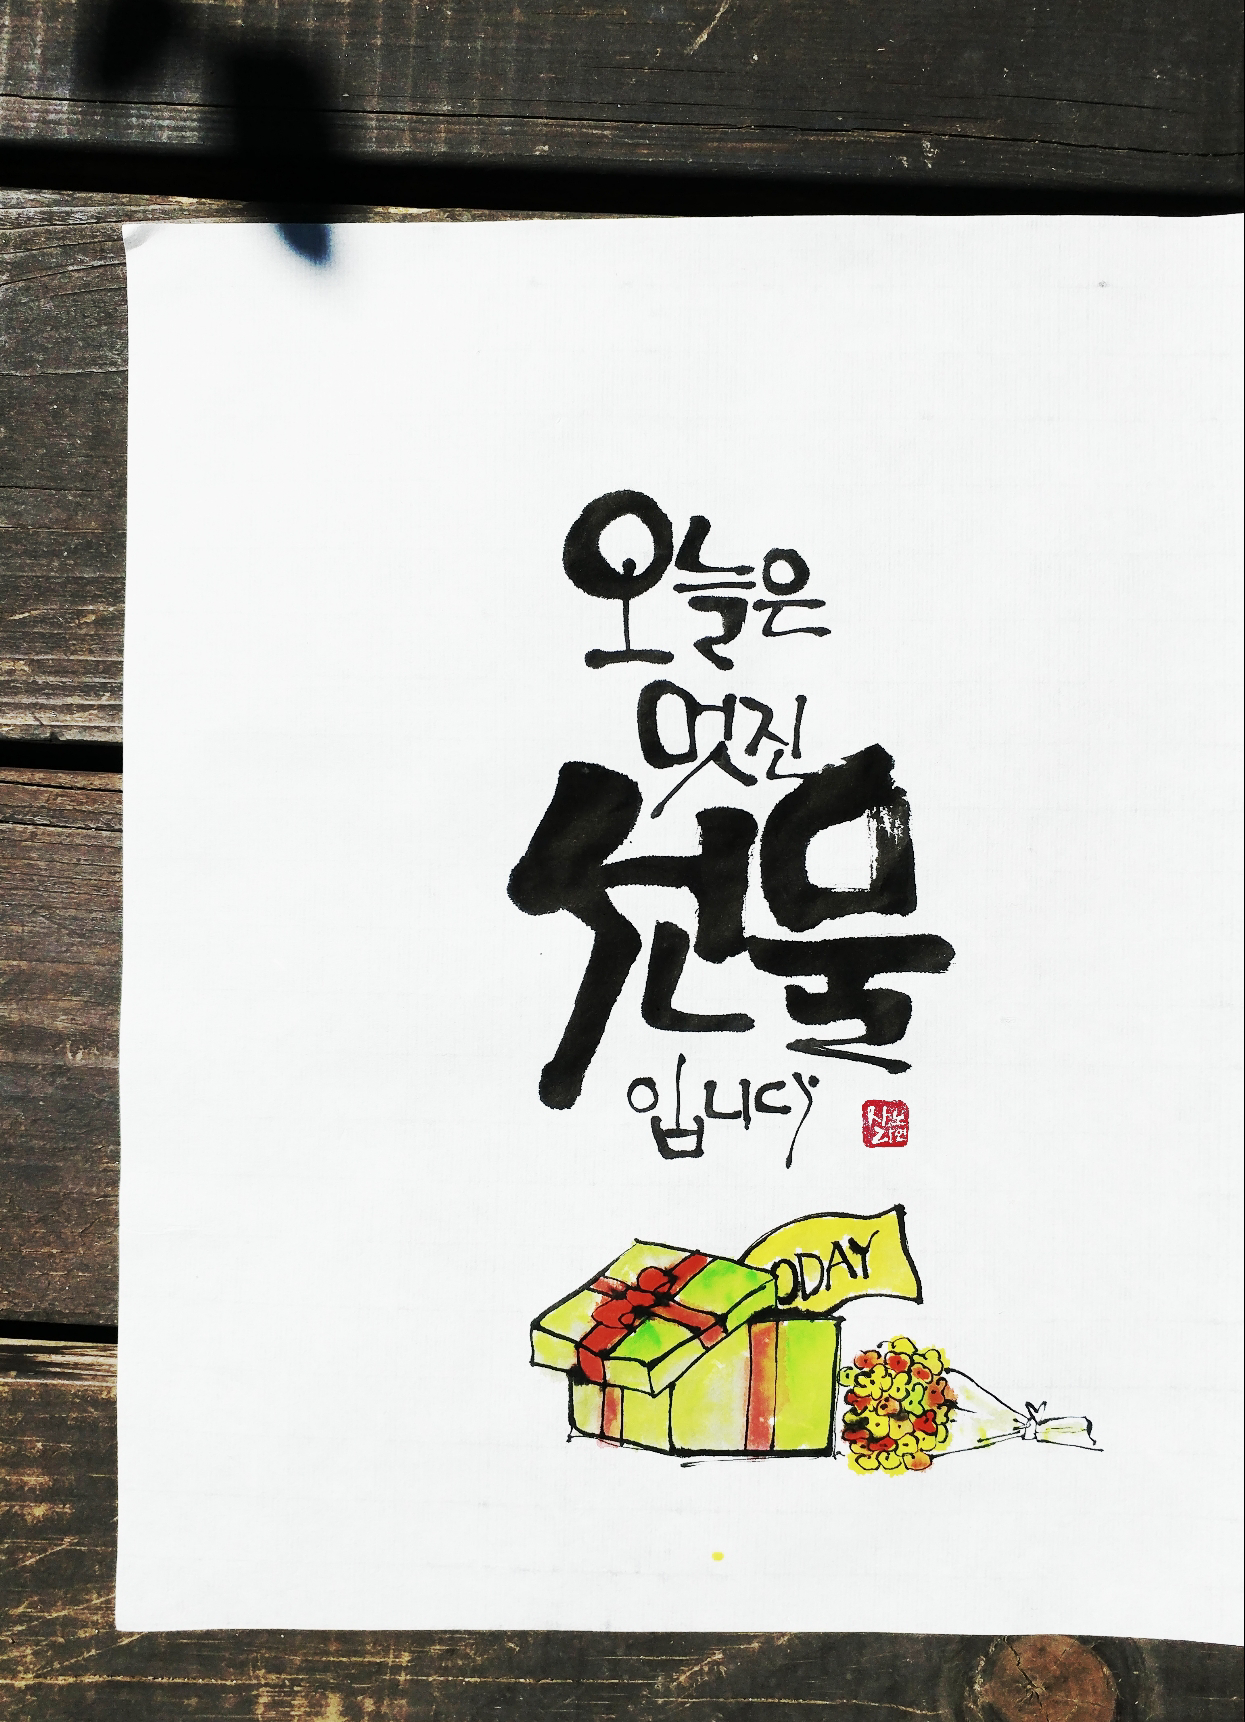 오늘은
멋진
선물
입니다
ODAY